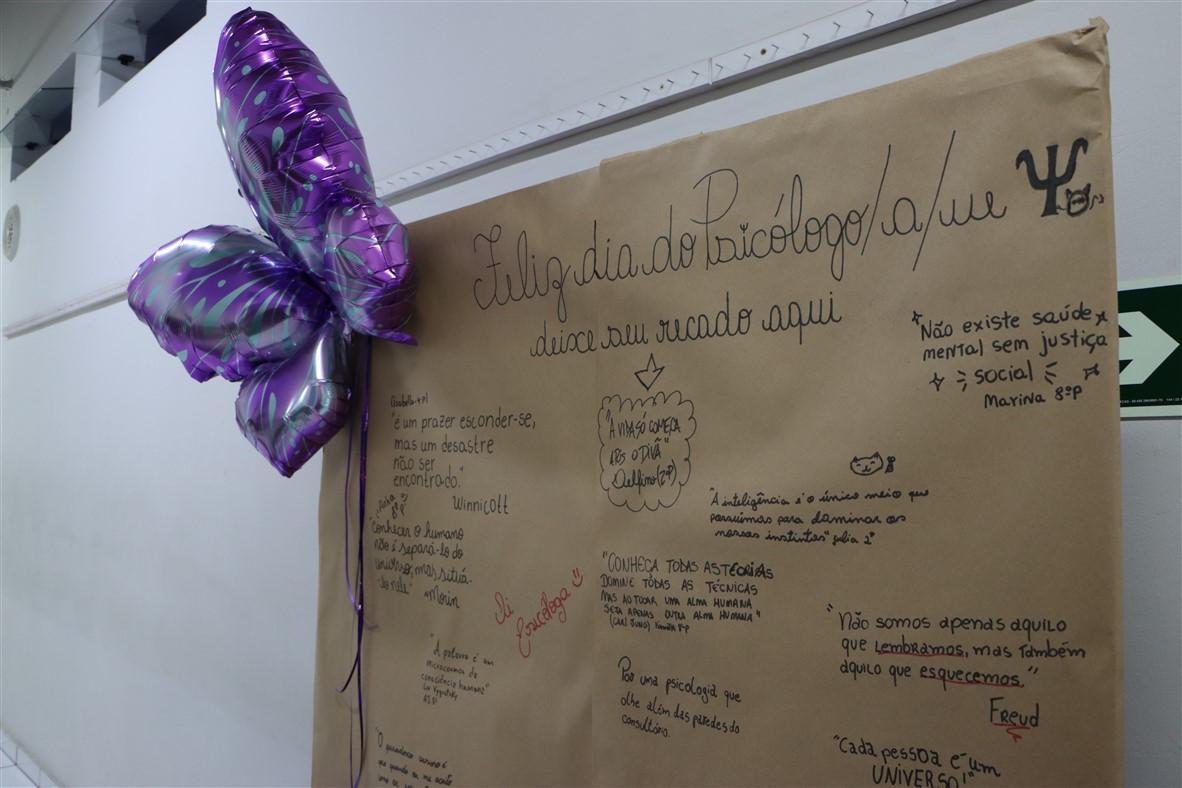 Feliz dia do Psicólogo/a/ue Ψ
deixe seu recado aqui
"Não existe saúde
mental sem justiça
social
Marina 8ºp
"é um prazer esconder-se,
mas um desastre
não ser
encontrado."
Winnicott
"A VIDA SÓ COMEÇA
O DIVÃ"
Delfino (2ºP)
"A inteligência é o único meio que
possuímos para dominar os
nossos instintos" Julia 2º
"conhecer o humano
não é separá-lo do
universo, mas situá-
-lo nele" Morin
"CONHEÇA TODAS AS TEORIAS
DOMINE TODAS AS TÉCNICAS
MAS AO TOCAR UMA ALMA HUMANA
SEJA APENAS OUTRA ALMA HUMANA"
(CARL JUNG) 8ºP
Psicóloga
"Não somos apenas aquilo
que lembramos, mas também
aquilo que esquecemos."
Freud
"A palavra é um
microcosmo da
consciência humana"
Lev Vygotsky
Por uma psicologia que
olhe além das paredes do
consultório.
"Cada pessoa é um
UNIVERSO!"
"O paradoxo curioso é
que quando eu me aceito
como eu sou